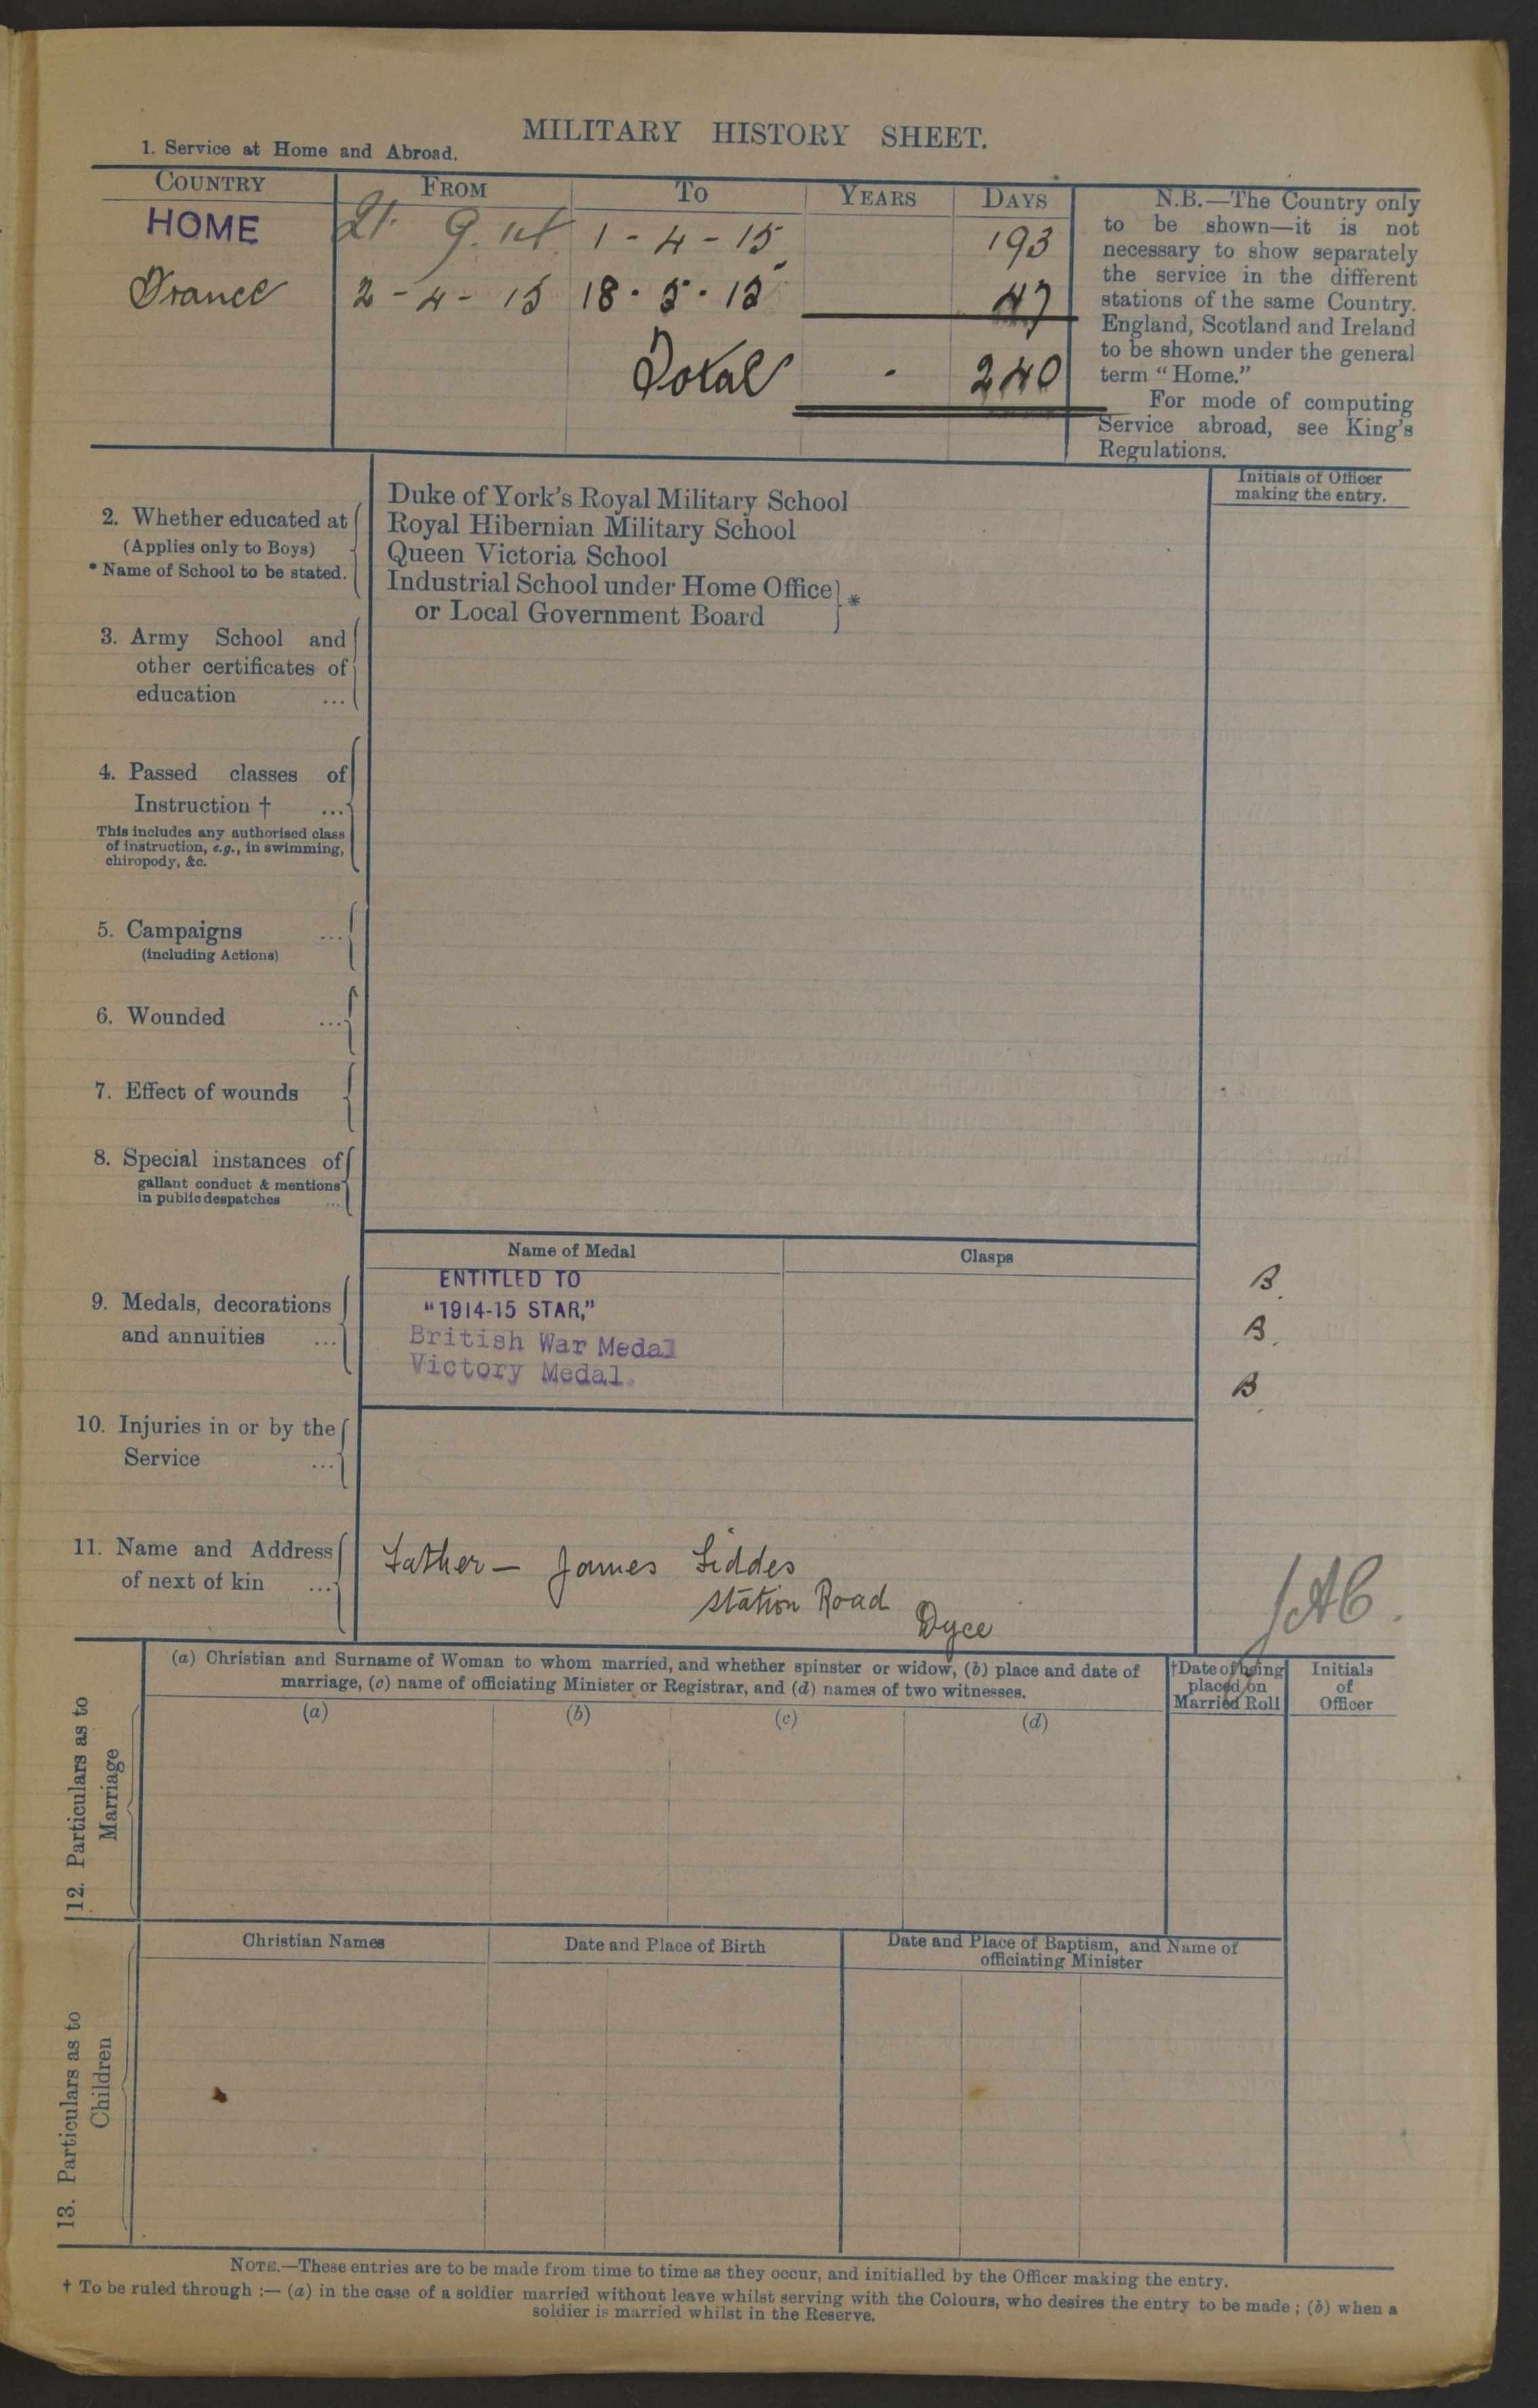 MILITARY HISTORY SHEET.
1. Service at Home and Abroad.
COUNTRY FROM TO YEARS DAYS
HOME 21. 9. 14 1-4-15 193
France 2-4-15 18.5.15 47
Total - 240
N.B.—The Country only
to be shown—it is not
necessary to show separately
the service in the different
stations of the same Country.
England, Scotland and Ireland
to be shown under the general
term “Home.”
For mode of computing
Service abroad, see King's
Regulations.
Initials of Officer
making the entry.
2. Whether educated at
(Applies only to Boys)
* Name of School to be stated.
Duke of York's Royal Military School
Royal Hibernian Military School
Queen Victoria School
Industrial School under Home Office
or Local Government Board
*
3. Army School and
other certificates of
education ...
4. Passed classes of
Instruction † ...
This includes any authorised class
of instruction, e.g., in swimming,
chiropody, &c.
5. Campaigns ...
(including Actions)
6. Wounded ...
7. Effect of wounds
8. Special instances of
gallant conduct & mentions
in public despatches ...
Name of Medal Clasps
9. Medals, decorations
and annuities ...
ENTITLED TO
“1914-15 STAR,”
British War Medal
Victory Medal.
B.
B.
B
10. Injuries in or by the
Service ...
11. Name and Address
of next of kin ...
Father — James Fiddes
Station Road
Dyce
JAC.
12. Particulars as to
Marriage
(a) Christian and Surname of Woman to whom married, and whether spinster or widow, (b) place and date of
marriage, (c) name of officiating Minister or Registrar, and (d) names of two witnesses.
†Date of being
placed on
Married Roll
Initials
of
Officer
(a) (b) (c) (d)
13. Particulars as to
Children
Christian Names
Date and Place of Birth
Date and Place of Baptism, and Name of
officiating Minister
NOTE.—These entries are to be made from time to time as they occur, and initialled by the Officer making the entry.
† To be ruled through :— (a) in the case of a soldier married without leave whilst serving with the Colours, who desires the entry to be made ; (b) when a
soldier is married whilst in the Reserve.